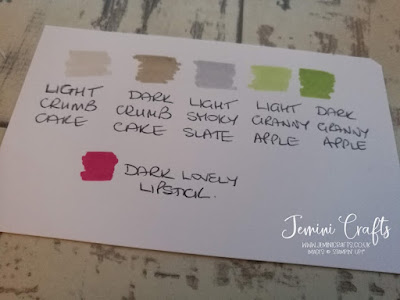 LIGHT CRUMB CAKE
DARK CRUMB CAKE
LIGHT SMOKY SLATE
LIGHT GRANNY APPLE
DARK GRANNY APPLE
DARK LOVELY
LIPSTICK.
Jemini Crafts
WWW.JEMINICRAFTS.CO.UK
IMAGES © STAMPIN' UP!